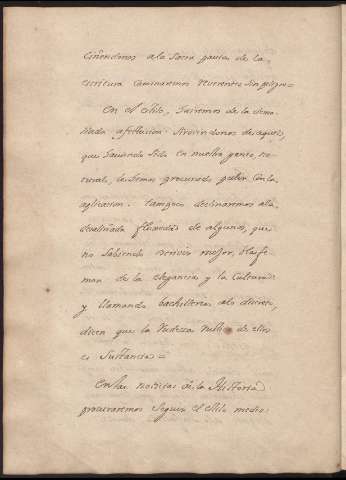 Ciñendonos a la Sacra pauta de la
escritura Caminaremos reverentes Sin peligro =
En el estilo, huiremos de la demasiada
afectacion. Sirviendonos de aquel,
que haviendo Sido en nuestra gente, natural,
le hemos procurado pulir Con la
aplicacion. tampoco declinaremos a la
desaliñada floxedad de algunos, que
no Sabiendo escrivir mejor, blasfeman
de la elegancia y la Cultura
y llamando bachilleria a lo discreto,
dicen que la Rudeza de ellos
es Sustancia =
En las noticias de la Historia
procuraremos Seguir el estilo medio: